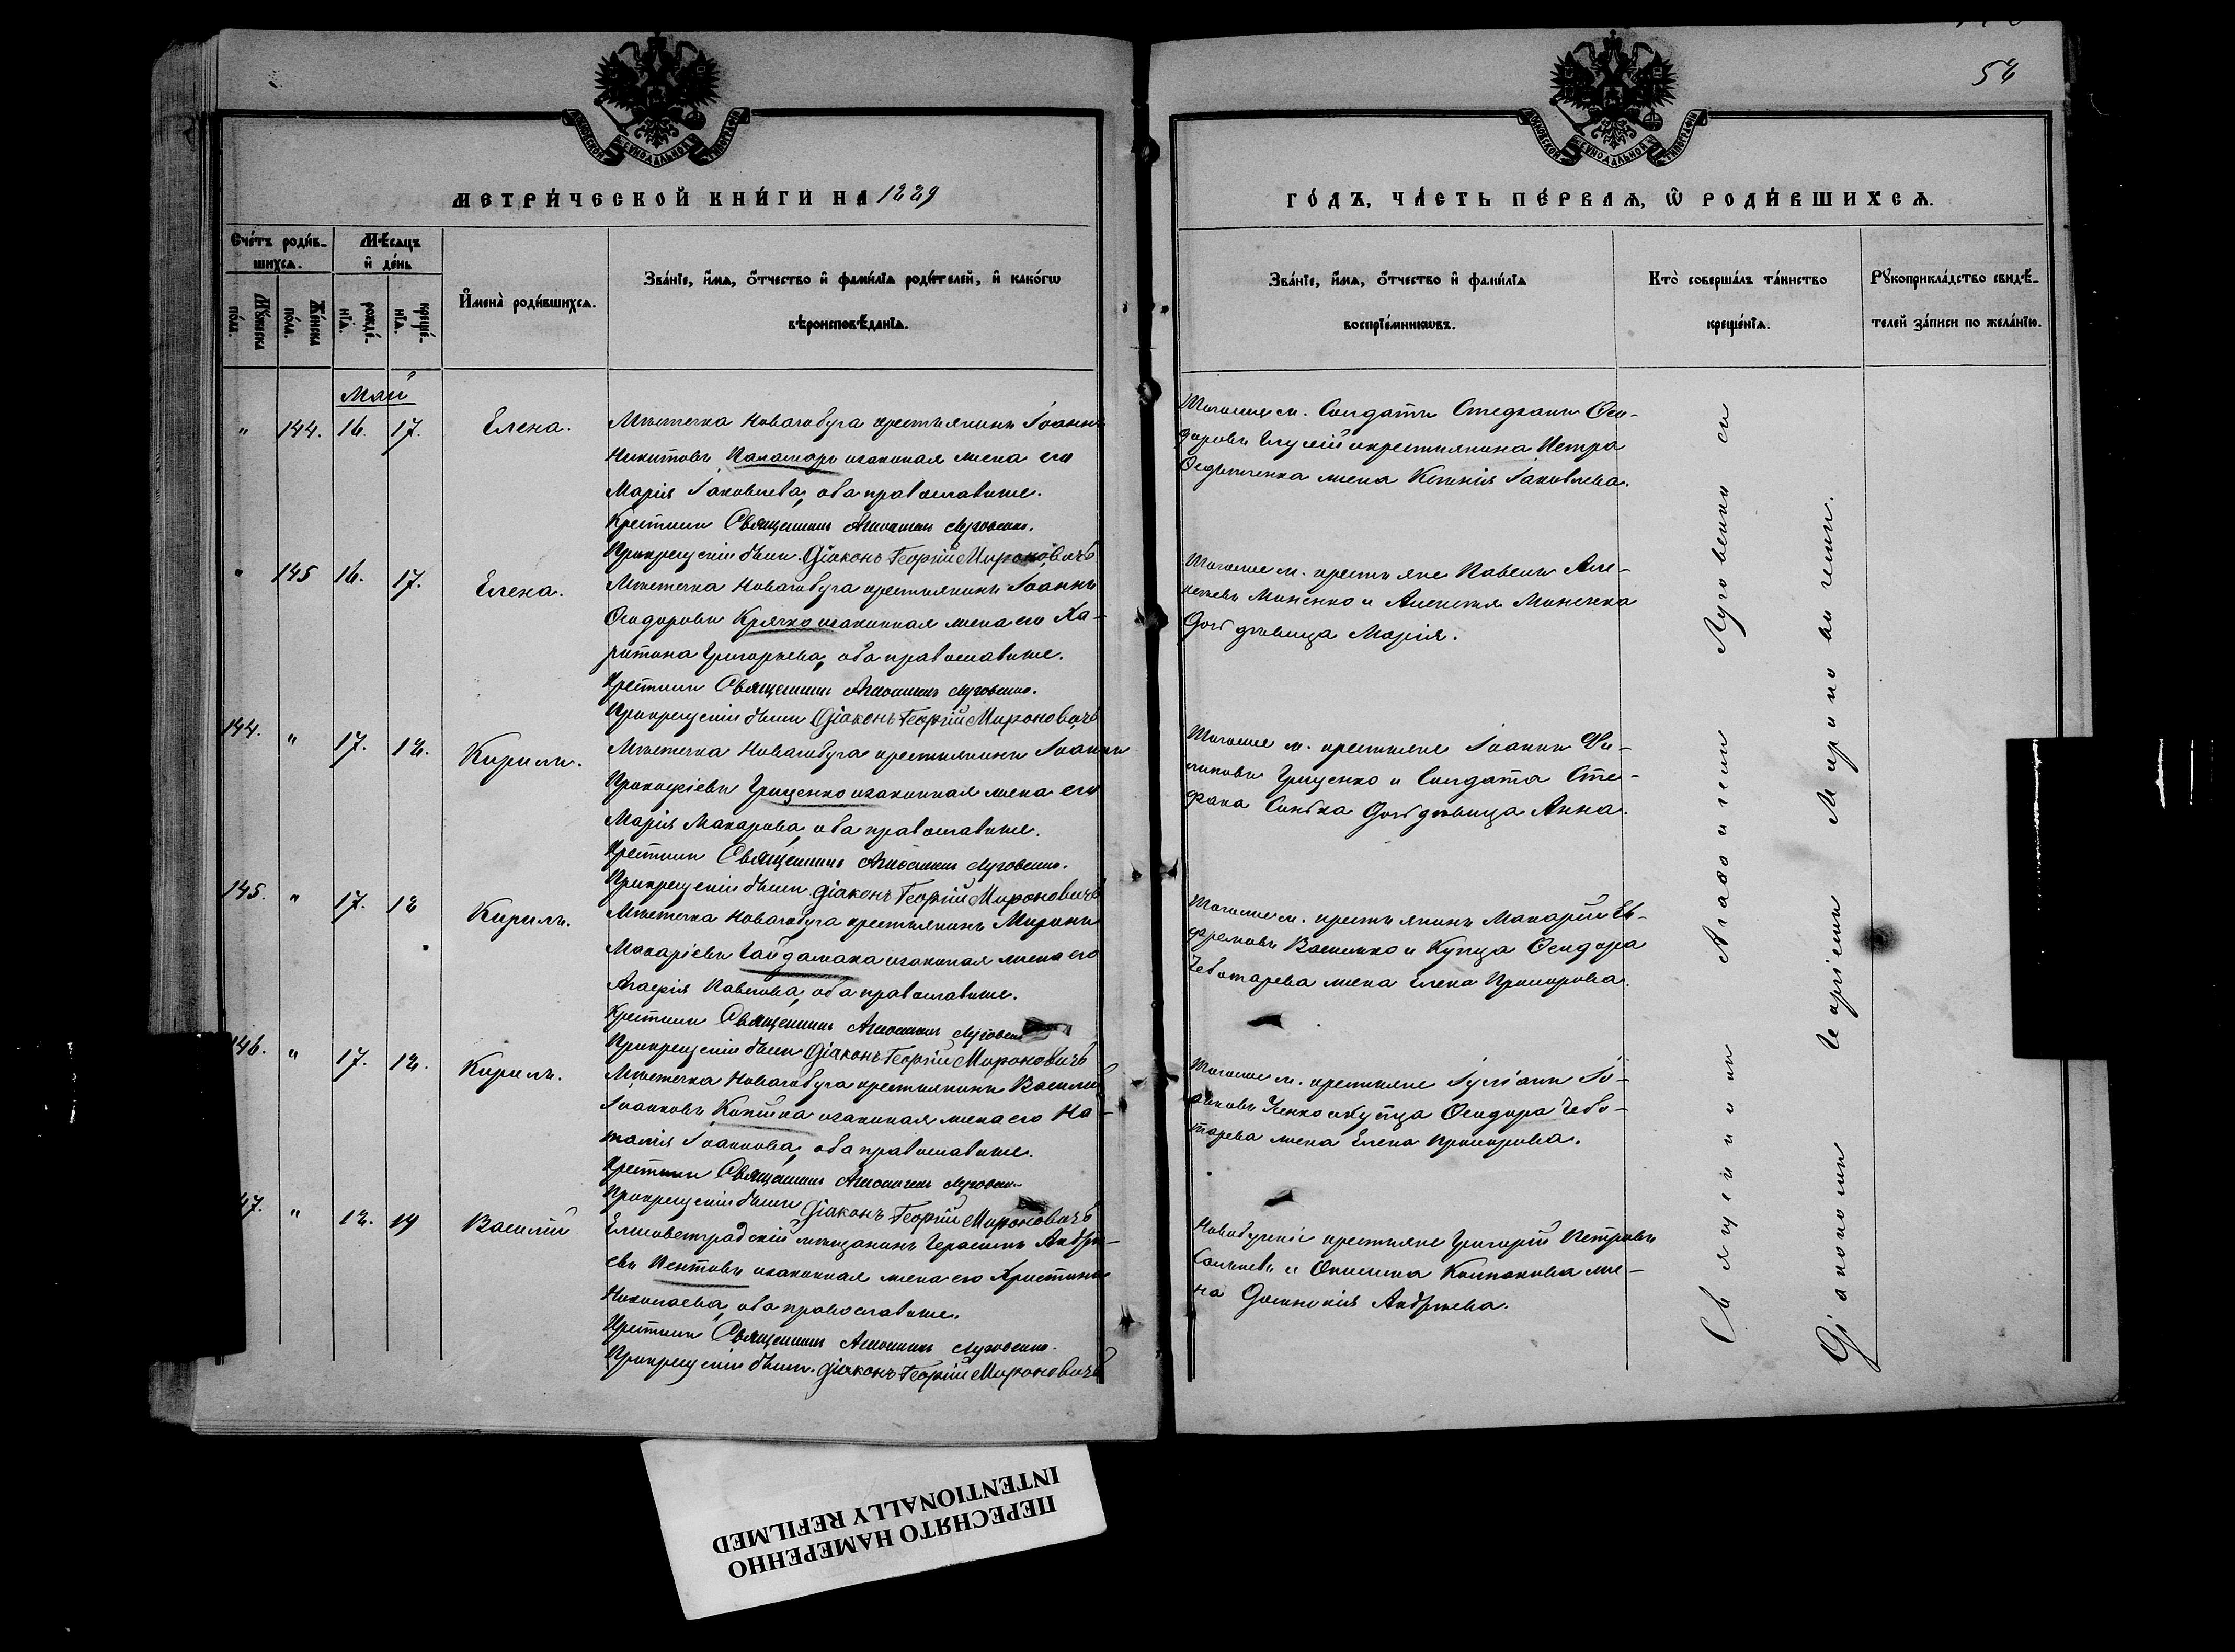 54
МОСКОВСКОЙ СѴНОДАЛЬНОЙ ТИПОГРАФІИ
МОСКОВСКОЙ СѴНОДАЛЬНОЙ ТИПОГРАФІИ
МЕТРИ́ЧЕСКОЙ КНИ́ГИ НА 1889
ГО́ДЪ, ЧА́СТЬ ПЕ́РВАѦ, Ѡ РОДИ́ВШИХСѦ.
Сче́тъ роди́в-
шихсѧ.
Мѣ́сѧцъ
и҆ де́нь
Мꙋ́жеска
по́ла.
Же́нска
по́ла.
рожде́-
нїѧ.
креще́-
нїѧ.
И҆мена̀ роди́вшихсѧ.
Зва́нїе, и҆́мѧ, ѻ҆́тчество и҆ фамі́лїѧ роди́телей, и҆ како́гѡ
вѣроисповѣ́данїѧ.
Зва́нїе, и҆́мѧ, ѻ҆́тчество и҆ фамі́лїѧ
воспрїе́мникѡвъ.
Кто̀ соверша́лъ та́инство
креще́нїѧ.
Рꙋкоприкла́дство свидѣ́-
телей за́писи по жела́нїю.
Май
" 144. 16. 17. Елена.
Мѣстечка Новагобуга крестьянинъ Іоаннъ
Никитовъ Паламарь и законная жена его
Марія Іаковлева, оба православные.
Крестилъ Священникъ Луговенко.
При крещеніи былъ Діаконъ Георгій Мироновичъ
Тогоже м. Солдатъ Стефанъ Ѳео-
доровъ и крестьянина Петра
жена Ксенія Іаковлева.
" 145 16. 17. Елена.
Мѣстечка Новагобуга крестьянинъ Іоаннъ
Ѳеодоровъ Крячко и законная жена его Ха-
ритина Григорьева, оба православные.
Крестилъ Священникъ Луговенко.
При крещеніи былъ Діаконъ Георгій Мироновичъ
Тогоже м. крестьяне Павелъ Але-
ксѣевъ Моненко и Алексѣя Моненка
дочь дѣвица Марія.
144. " 17. 18. Кирилъ.
Мѣстечка Новагобуга крестьянинъ Іоаннъ
Прокофіевъ Грищенко и законная жена его
Марія Макарова, оба православные.
Крестилъ Священникъ Луговенко.
При крещеніи былъ Діаконъ Георгій Мироновичъ
Тогоже м. крестьяне Іоаннъ Фи-
липовъ Грищенко и Солдата Сте-
фана дочь дѣвица Анна.
145. " 17. 18 Кирилъ.
Мѣстечка Новагобуга крестьянинъ Миронъ
Макаріевъ Гайдамака и законная жена его
Агафія Павлова, оба православные.
Крестилъ Священникъ
При крещеніи былъ Діаконъ Георгій Мироновичъ
Тогоже м. крестьянинъ Макарій Еѵ-
фремовъ Василько и Купца Ѳеодора
Чеботарева жена Елена Прохорова.
146. " 17. 18. Кирилъ.
Мѣстечка Новагобуга крестьянинъ Василій
Іоанновъ Копійка и законная жена его На-
талія Іоаннова, оба православные.
Крестилъ Священникъ Луговенко
При крещеніи былъ Діаконъ Георгій Мироновичъ
Тогоже м. крестьяне Іо-
анновъ и купца Ѳеодора Чебо-
тарева жена Елена Прохорова.
47. " 18. 19 Василій
Елисоветградскій мѣщанинъ Герасимъ Андре-
евъ Пентовъ и законная жена его Христина
Николаева, оба православные.
Крестилъ Священникъ Луговенко.
При крещеніи былъ Діаконъ Георгій Мироновичъ
Новобугскіе крестьяне Григорій Петровъ
и Колпакова же-
на Домникія Андреева.
Священникъ Луговенко съ
Діакономъ Георгіемъ Мироновичемъ.
ПЕРЕСНЯТО НАМЕРЕННО
INTENTIONALLY REFILMED